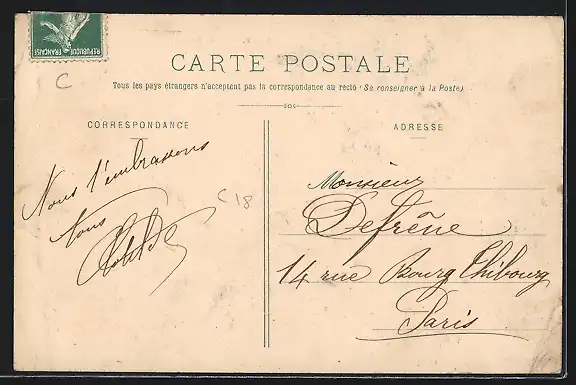 REPUBLIQUE FRANÇAISE
C
CARTE POSTALE
Tous les pays étrangers n'acceptent pas la correspondance au recto (Se renseigner à la Poste)
CORRESPONDANCE
Nous t'embrassons
Tous
Clotilde
C18
ADRESSE
Monsieur
Defrêne
14 rue Bourg Thibourg
Paris